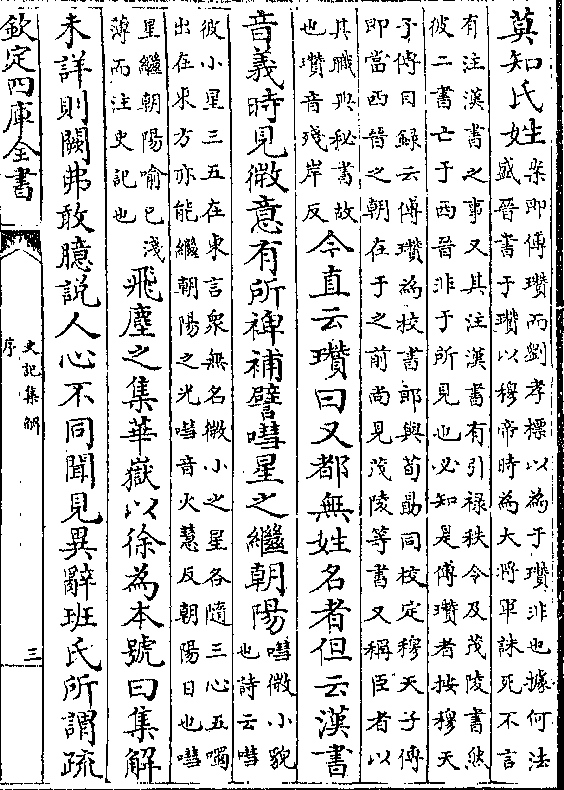 莫知氏姓
案即傅瓚而劉孝標以為于瓚非也據何法
盛晉書于瓚以穆帝時為大將軍誅死不言
有注漢書之事又其注漢書有引祿秩令及茂陵書然
彼二書亡于西晉非于所見也必知是傅瓚者按穆天
子傳目録云傅瓚為校書郎與荀勗同校定穆天子傳
即當西晉之朝在于之前尚見茂陵等書又稱臣者以
其職典秘書故
也瓚音殘岸反
今直云瓚曰又都無姓名者但云漢書
音義時見微意有所裨補譬嘒星之繼朝陽
嘒微小貌
也詩云嘒
彼小星三五在東言衆無名微小之星各隨三心五噣
出在東方亦能繼朝陽之光嘒音火慧反朝陽日也嘒
星繼朝陽喻已淺
薄而注史記也
飛塵之集華嶽以徐為本號曰集解
未詳則闕弗敢臆説人心不同聞見異辭班氏所謂疏
欽定四庫全書
史記集解
序
三